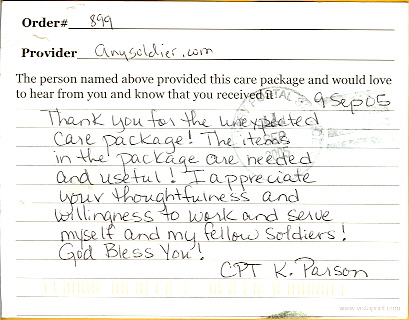 Order# 899
Provider anysoldier.com
The person named above provided this care package and would love
to hear from you and know that you received it
9 Sep 05
Thank you for the unexpected
care package! The items
in the package are needed
and useful! I appreciate
your thoughtfulness and
willingness to work and serve
myself and my fellow soldiers!
God Bless You!
CPT K. Parson
www.vistaprint.com